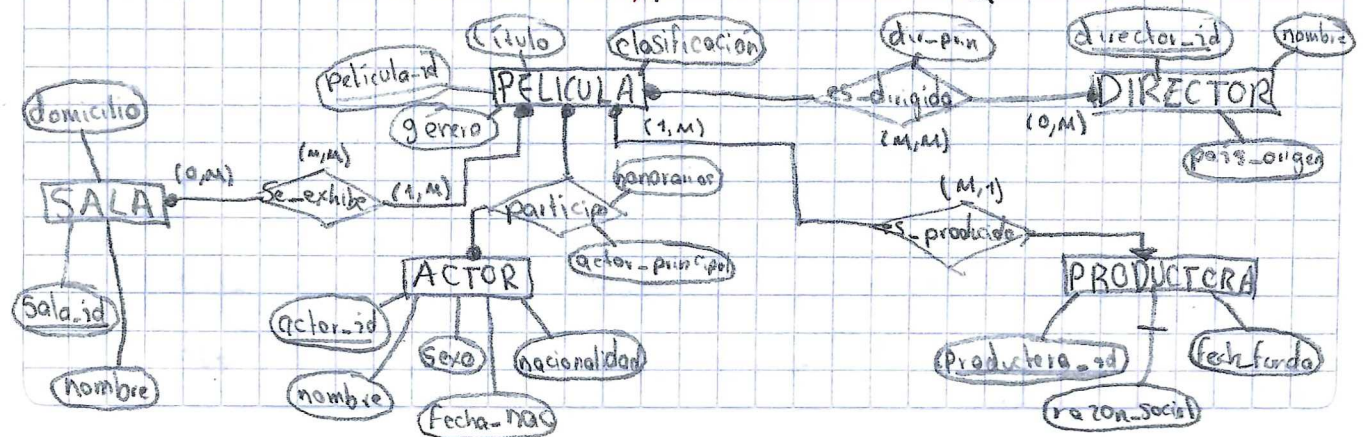 título
clasificación
dir_prin
director_id
nombre
película_id
PELICULA
es_dirigida
DIRECTOR
domicilio
genero
(1,M)
(M,M)
(0,M)
pais_origen
(0,M)
(M,M)
(1,M)
honorarios
(M,1)
SALA
Se_exhibe
participa
es_producida
actor_principal
ACTOR
PRODUCTORA
Sala_id
actor_id
sexo
nacionalidad
productora_id
fech_funda
nombre
nombre
fecha_nac
razon_social